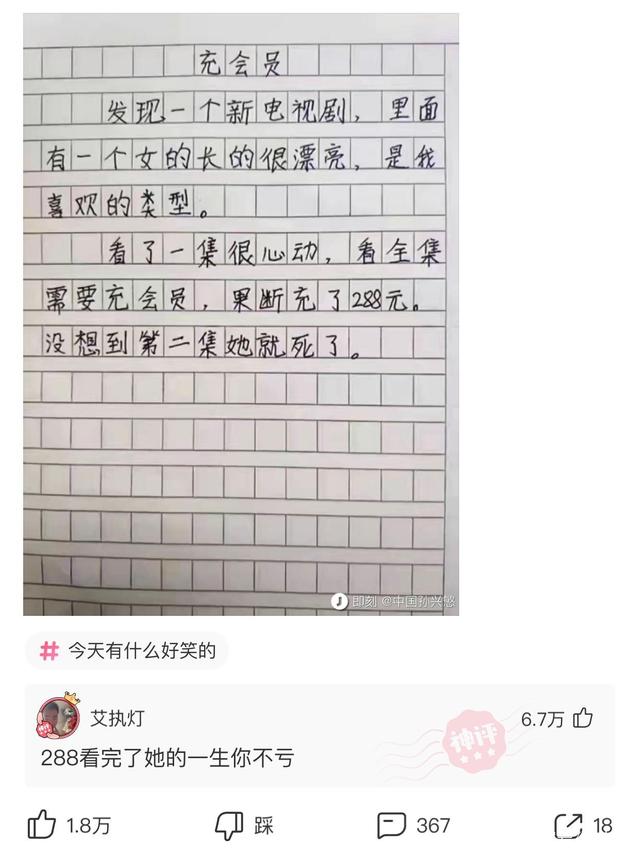 充会员
发现一个新电视剧，里面
有一个女的长的很漂亮，是我
喜欢的类型。
看了一集很心动，看全集
需要充会员，果断充了288元。
没想到第二集她就死了。
即刻 @中国孙兴慜
# 今天有什么好笑的
艾执灯
6.7万
神评
288看完了她的一生你不亏
1.8万
踩
367
18